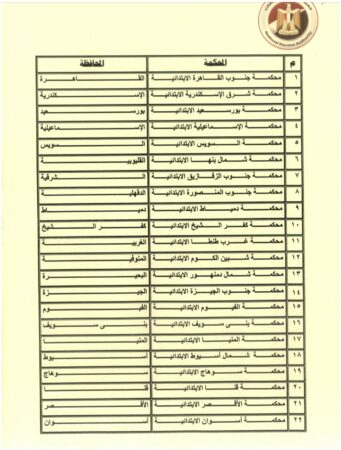 National Election Authority
م المحكمة المحافظة
١ محكمة جنوب القاهرة الابتدائية القاهرة
٢ محكمة شرق الإسكندرية الابتدائية الإسكندرية
٣ محكمة بورسعيد الابتدائية بورسعيد
٤ محكمة الإسماعيلية الابتدائية الإسماعيلية
٥ محكمة السويس الابتدائية السويس
٦ محكمة شمال بنها الابتدائية القليوبية
٧ محكمة جنوب الزقازيق الابتدائية الشرقية
٨ محكمة جنوب المنصورة الابتدائية الدقهلية
٩ محكمة دمياط الابتدائية دمياط
١٠ محكمة كفر الشيخ الابتدائية كفر الشيخ
١١ محكمة غرب طنطا الابتدائية الغربية
١٢ محكمة شبين الكوم الابتدائية المنوفية
١٣ محكمة شمال دمنهور الابتدائية البحيرة
١٤ محكمة جنوب الجيزة الابتدائية الجيزة
١٥ محكمة الفيوم الابتدائية الفيوم
١٦ محكمة بنى سويف الابتدائية بنى سويف
١٧ محكمة المنيا الابتدائية المنيا
١٨ محكمة شمال أسيوط الابتدائية أسيوط
١٩ محكمة سوهاج الابتدائية سوهاج
٢٠ محكمة قنا الابتدائية قنا
٢١ محكمة الأقصر الابتدائية الأقصر
٢٢ محكمة أسوان الابتدائية أسوان